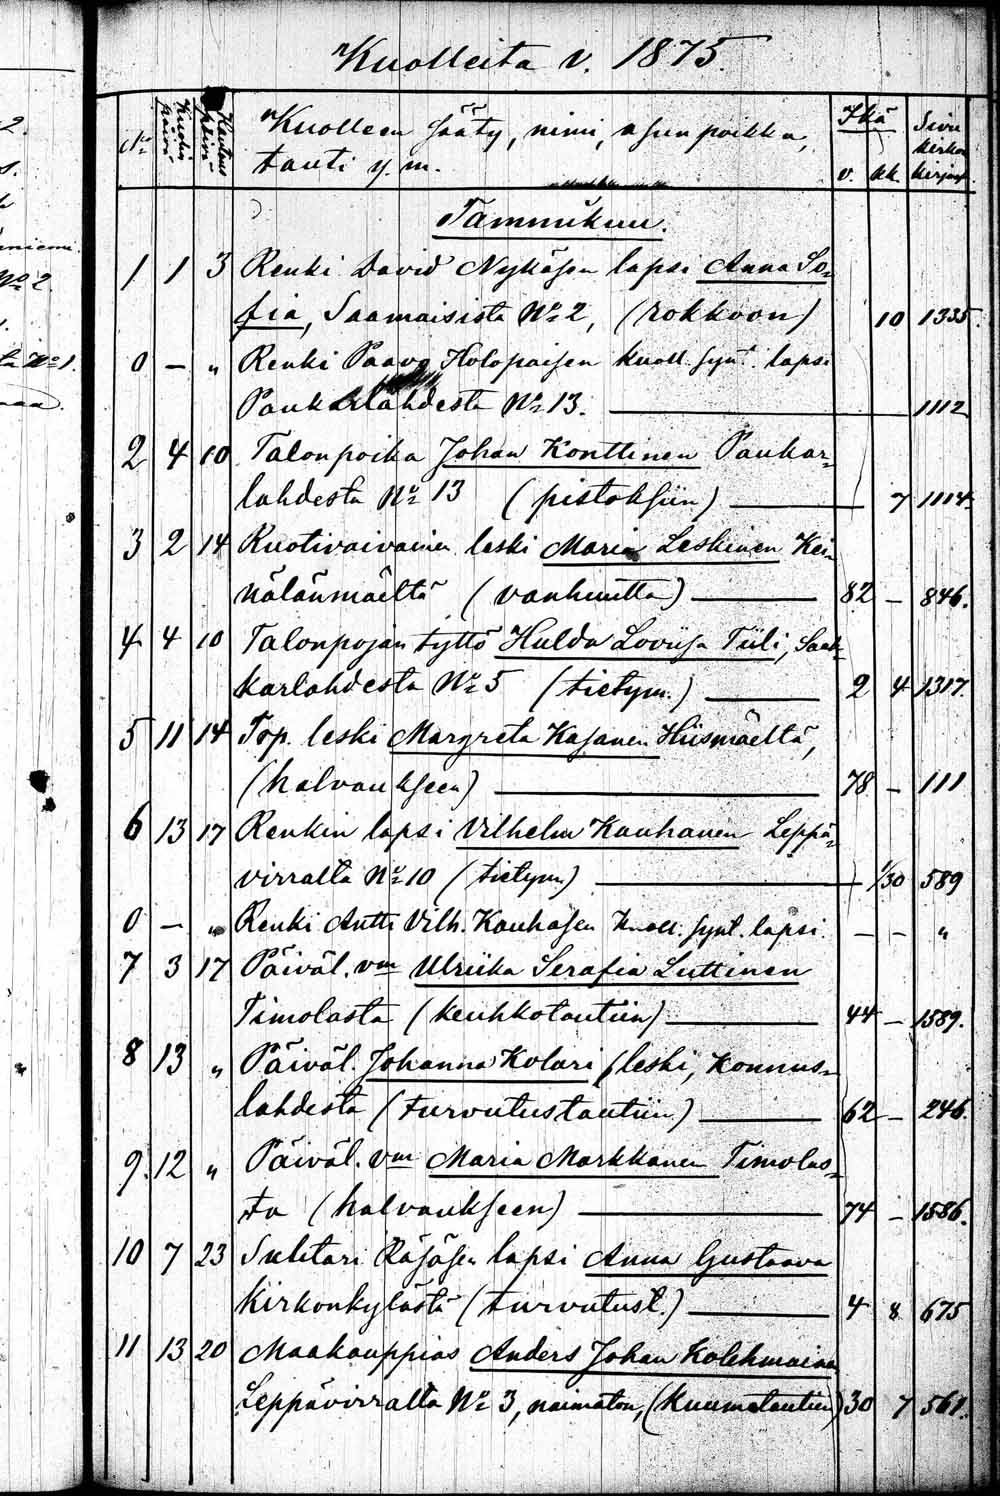 Kuolleita v. 1875.
No Kuolin päivä Hautaus päivä Kuolleen sääty, nimi, asunpaikka, tauti y. m. Ikä v. kk. Sivu kirkon kirjass.
Tammikuu.
1 1 3 Renki David Nykäsen lapsi Anna So=
fia, Saamaisista No 2, (rokkoon) 10 1335.
0 — „ Renki Paavo Holopaisen kuoll. synt. lapsi
Paukarlahdesta No 13. — 1112
2 4 10 Talonpoika Johan Konttinen Paukar=
lahdesta No 13 (pistoksiin) — 7 1114.
3 2 14 Ruotivaivainen leski Maria Leskinen Kei=
nälänmäeltä (vanhuutta) — 82 — 846.
4 4 10 Talonpojan tyttö Hulda Loviisa Tiili,
karlahdesta No 5 (tietym.) — 2 4 1317.
5 11 14 Top. leski Margreta Kasanen Hiismäeltä,
(halvaukseen) — 78 — 111
6 13 17 Renkin lapsi Vilhelm Kauhanen Leppä=
virralta No 10 (tietym) — 1/30 589
0 — „ Renki Antti Vilh. Kauhasen kuoll. synt. lapsi. — — „
7 3 17 Päiväl. vm Ulriika Serafia Luttinen
Timolasta (keuhkotautiin) — 44 — 1589.
8 13 „ Päiväl. Johanna Kolari, leski, Konnus=
lahdesta (turvutustautiin) — 62 — 246.
9. 12 „ Päiväl. vm Maria Markkanen Timolas=
ta (halvaukseen) — 74 — 1586.
10 7 23 Suutari Räsäsen lapsi Anna Gustaava
kirkonkylästä (turvutust.) — 4 8 675
11 13 20 Maakauppias Anders Johan Kolehmainen
Leppävirralta No 3, naimaton, (kuumetautiin) 30 7 561.